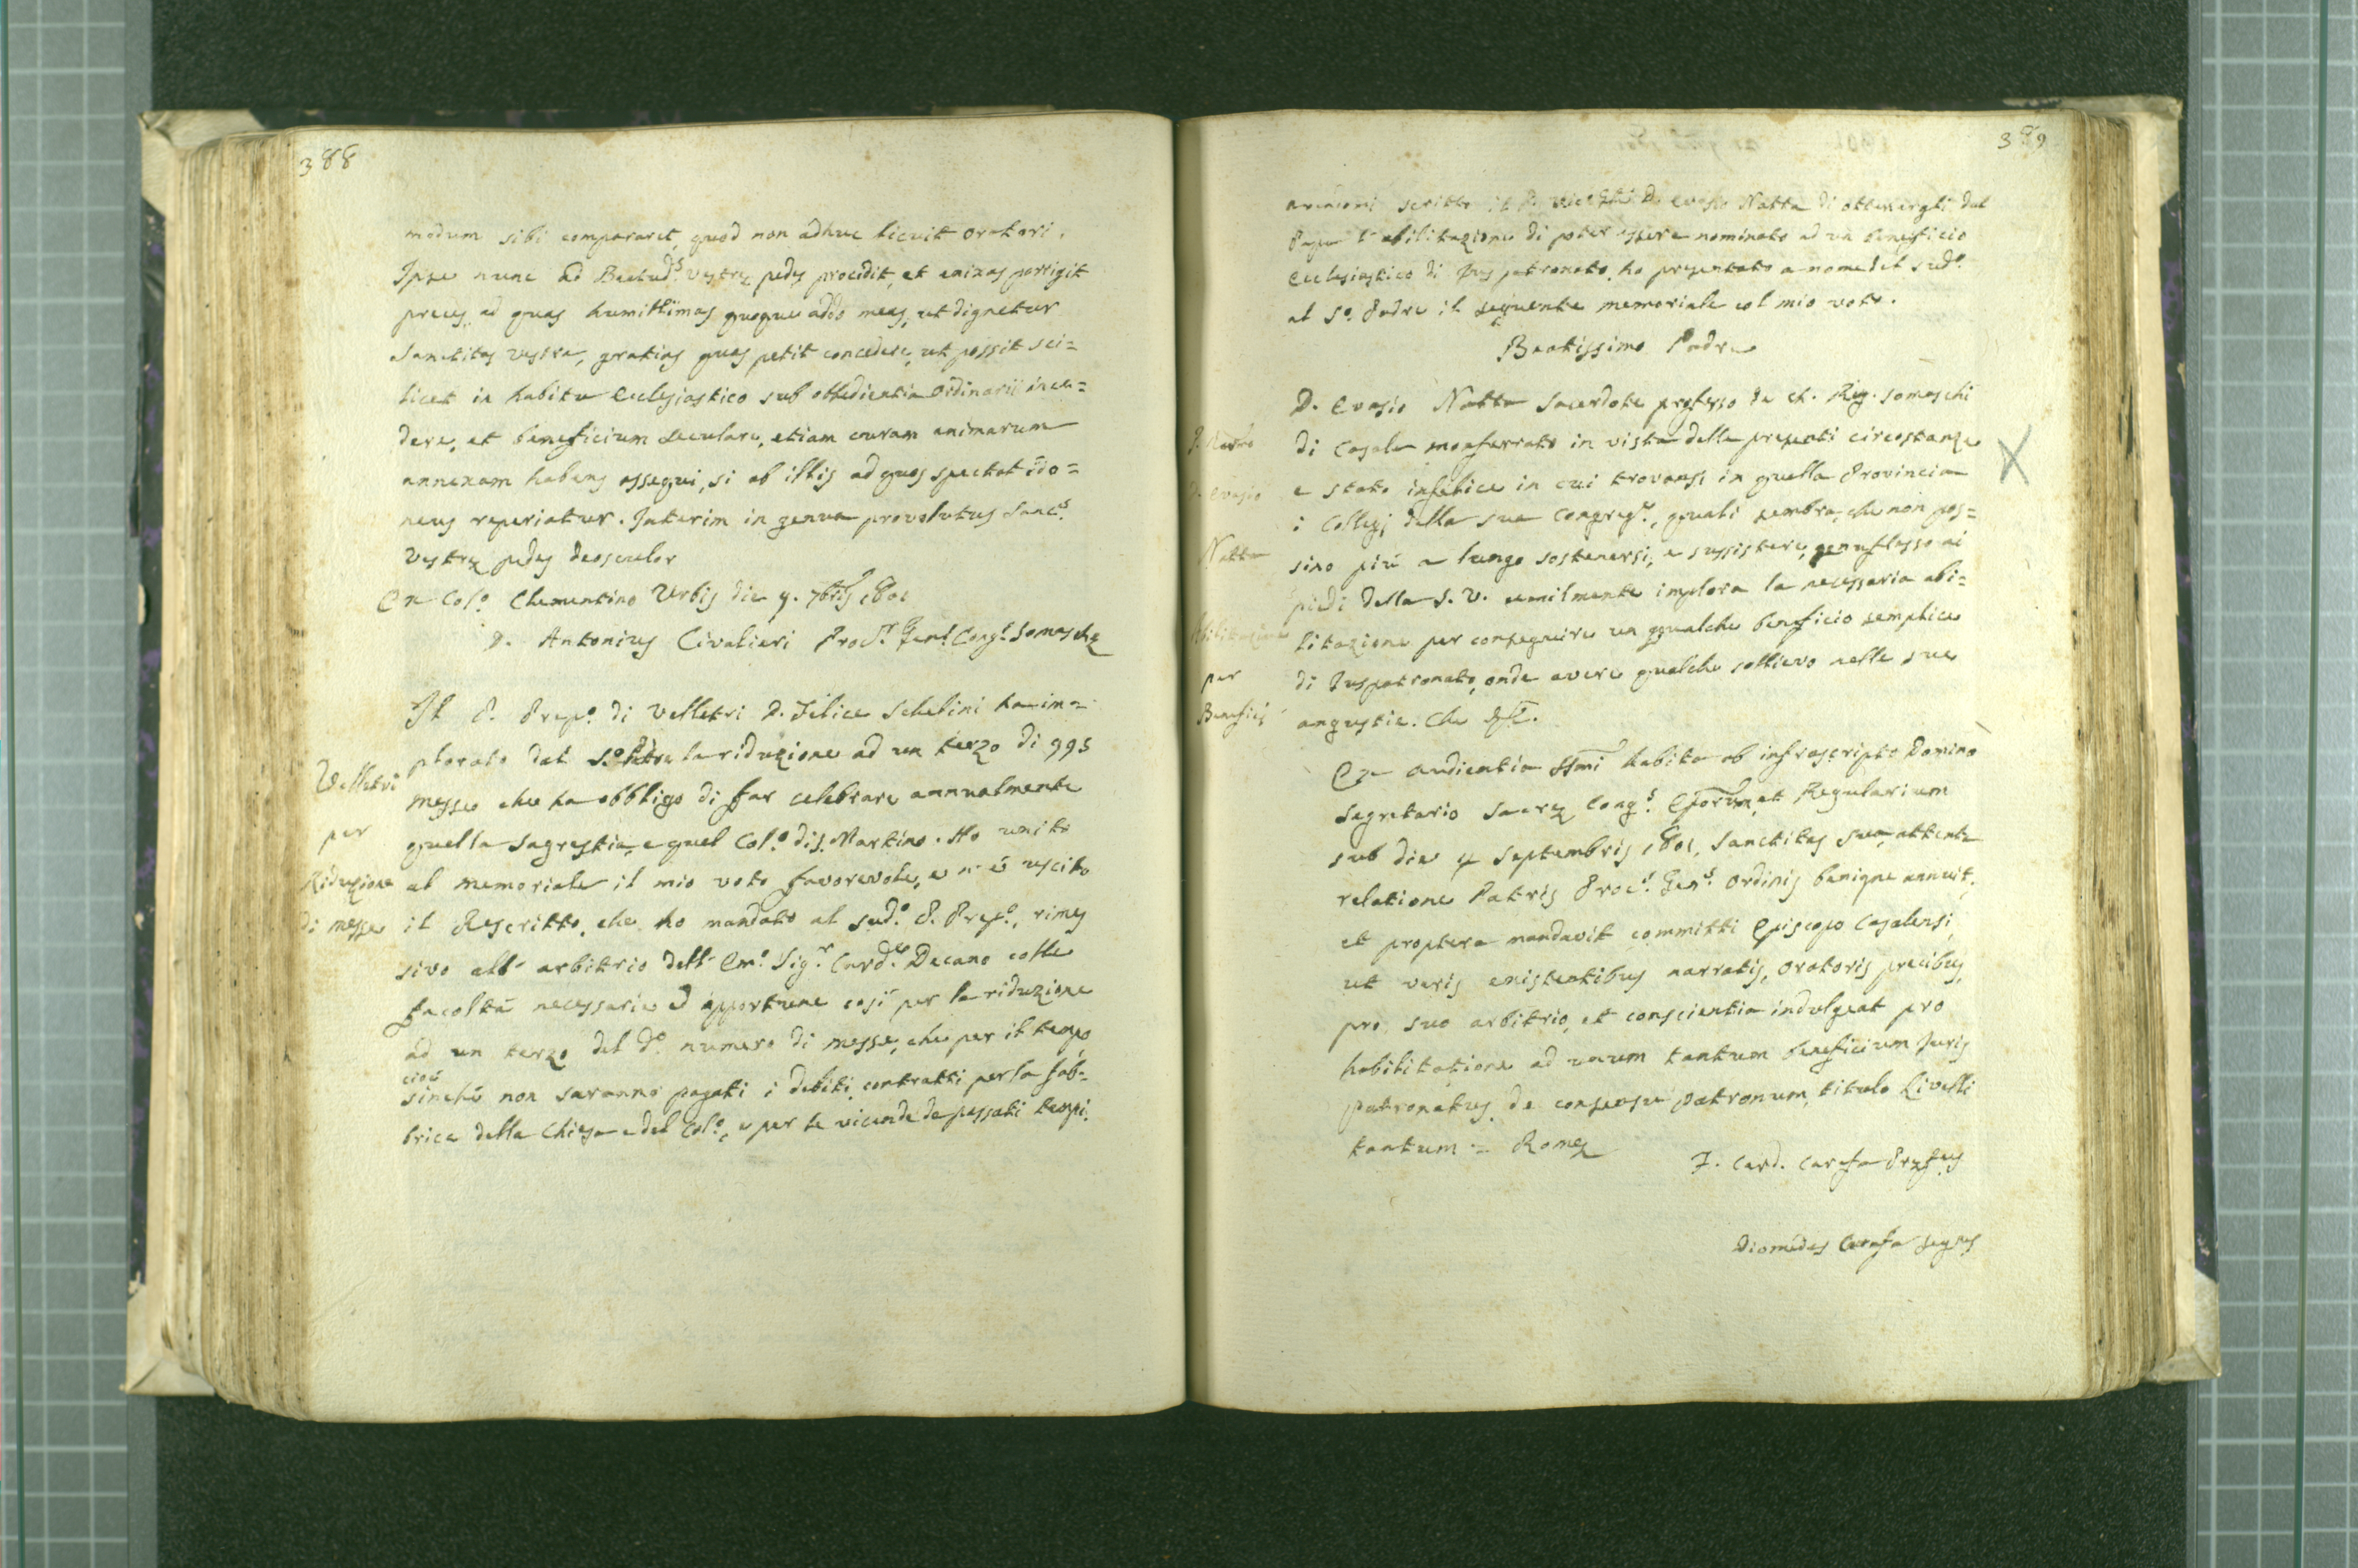 388
modum sibi compararet, quod non adhuc licuit oratori.
Ipse nunc ad Beatud.s vestrę pedes procidit, et enixas porrigit
preces, ad quas humillimas quoque addo meas, ut dignetur
Sanctitas vestra, gratias quas petit concedere, ut possit sci=
licet in habitu Ecclesiastico sub obbedientia Ordinarii ince=
dere, et beneficium seculare, etiam curam animarum
annexam habens assequi, si ab illis ad quos spectat ido=
neus reperiatur. Interim in genua provolutus Sanc.s
vestrę pedes deosculor
Ex Col.o Clementino Urbis die 9. 7bris 1801
D. Antonius Civalieri Proc.r Gen.l Cong.s Somaschę
Velletri
per
Riduzione
di messe
Il P. Prep.o di Velletri D. Felice Schelini ha im=
plorato dal S.o Pdre la riduzione ad un terzo di 995
messe che ha obbligo di far celebrare annualmente
quella Sagrestia, e quel Col.o di S. Martino. Ho unito
al memoriale il mio voto favorevole, e n' é uscito
il Rescritto, che ho mandato al sud.o P. Prep.o, rimes
sivo all' arbitrio dell' Em.o Sig.r Card.le Decano colle
facoltà necessarie ed opportune cosi per la riduzione
ad un terzo del d.o numero di messe, che per il tempo
cioé
sinché non saranno pagati i debiti contratti per la fab=
brica della Chiesa e del Col.o, e per le vicende de passati tempi.
389
scritto il P. D. Evasio Natta di ottenergli dal
Papa l' abilitazione di poter essere nominato ad un beneficio
Ecclesiastico di Jus patronato, ho presentato a nome del sud.o
al S.o Padre il seguente memoriale col mio voto.
Beatissimo Padre
D. Evasio
Natta
Abilitazione
per
Beneficj
D. Evasio Natta Sacerdote professo de Ch. Reg. Somaschi
di Casale Monferrato in vista delle presenti circostanze
e stato infelice in cui trovansi in quella Provincia
i Collegj della sua Congreg.e, quali sembra, che non pos=
sino piú a lungo sostenersi, e sussistere, genuflesso ai
piedi della S. V. umilmente implora la necessaria abi=
litazione per conseguire un qualche beneficio semplice
di Juspatronato, onde avere qualche sollievo nelle sue
angustie. Che &c.
Ex audientia SSmi habita ab infrascripto Domino
Segretario Sacrę Cong.s Eporum, et Regularium
sub die 4 Septembris 1801, Sanctitas Sua, attenta
relatione Patris Proc.s Gen.s Ordinis benigne annuit,
et propterea mandavit committi Episcopo Casalensi,
ut veris existentibus narratis, oratoris precibus,
pro suo arbitrio, et conscientia indulgeat pro
habilitatione ad unum tantum beneficium Juris
patronatus de consensu patronum, titulo Livelli
tantum = Romę
F. Card. Carafa Pręfus
Diomedes Carafa
X